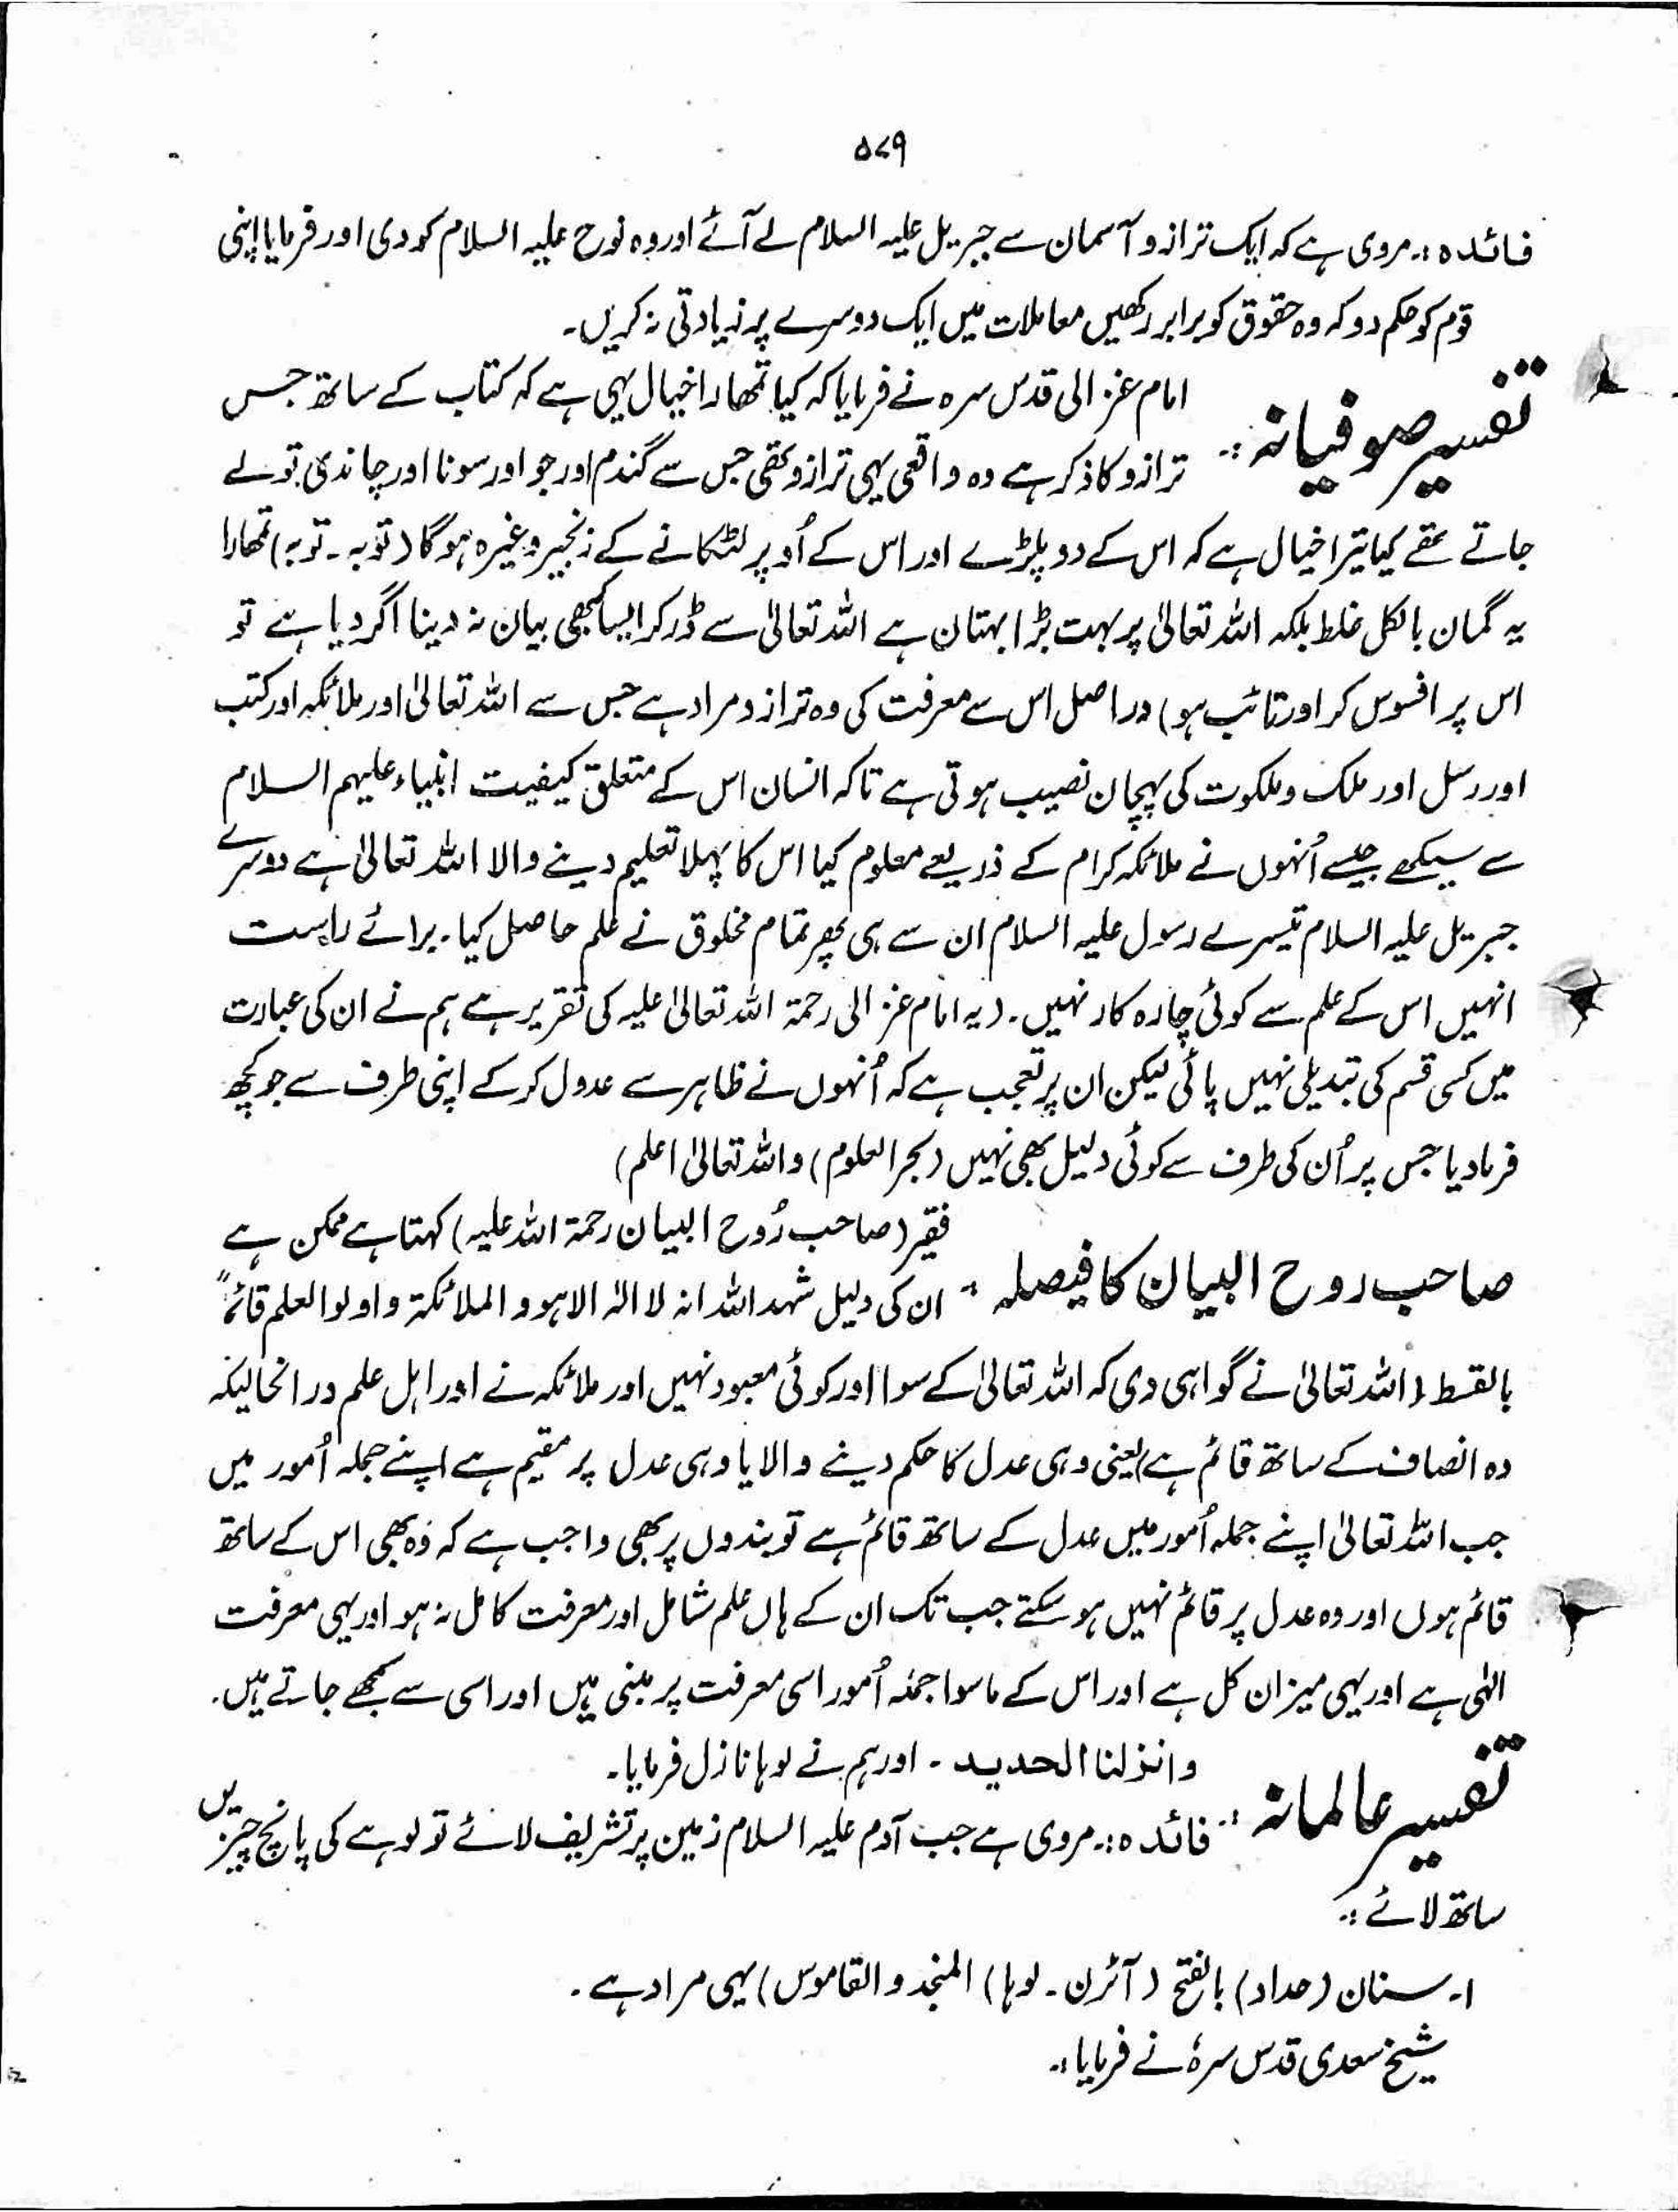 ۵۷۹
فائدہ:۔ مروی ہے کہ ایک ترازو آسمان سے جبریل علیہ السلام لے آئے اور وہ نوح علیہ السلام کو دی اور فرمایا اپنی
قوم کو حکم دو کہ وہ حقوق کو برابر رکھیں معاملات میں ایک دوسرے پر زیادتی نہ کریں۔
تفسیر صوفیانہ:۔
امام غزالی قدس سرہ نے فرمایا کہ کیا تمھارا خیال یہی ہے کہ کتاب کے ساتھ جس
ترازو کا ذکر ہے وہ واقعی یہی ترازو تھی جس سے گندم اور جو اور سونا اور چاندی تولے
جاتے تھے کیا تیرا خیال ہے کہ اس کے دو پلڑے اور اس کے اُوپر لٹکانے کے زنجیر وغیرہ ہوگا (توبہ۔ توبہ) تمھارا
یہ گمان بالکل غلط بلکہ اللہ تعالیٰ پر بہت بڑا بہتان ہے اللہ تعالیٰ سے ڈر کر ایسا کبھی بیان نہ دینا اگر دیا ہے تو
اس پر افسوس کر اور تائب ہو) دراصل اس سے معرفت کی وہ ترازو مراد ہے جس سے اللہ تعالیٰ اور ملائکہ اور کتب
اور رسل اور ملک و ملکوت کی پہچان نصیب ہوتی ہے تاکہ انسان اس کے متعلق کیفیت انبیاء علیہم السلام
سے سیکھے جیسے اُنہوں نے ملائکہ کرام کے ذریعے معلوم کیا اس کا پہلا تعلیم دینے والا اللہ تعالیٰ ہے دوسرے
جبریل علیہ السلام تیسرے رسول علیہ السلام ان سے ہی پھر تمام مخلوق نے علم حاصل کیا۔ برائے راست
انہیں اس کے علم سے کوئی چارہ کار نہیں۔ (یہ امام غزالی رحمۃ اللہ تعالیٰ علیہ کی تقریر ہے ہم نے ان کی عبارت
میں کسی قسم کی تبدیلی نہیں پائی لیکن ان پر تعجب ہے کہ اُنہوں نے ظاہر سے عدول کر کے اپنی طرف سے جو کچھ
فرما دیا جس پر اُن کی طرف سے کوئی دلیل بھی نہیں (بحر العلوم) واللہ تعالیٰ اعلم)
صاحب روح البیان کا فیصلہ:۔
فقیر (صاحب رُوح البیان رحمۃ اللہ علیہ) کہتا ہے ممکن ہے
ان کی دلیل شہد اللہ انہ لا الٰہ الا ہو والملائکۃ واولوا العلم قائماً
بالقسط (اللہ تعالیٰ نے گواہی دی کہ اللہ تعالیٰ کے سوا اور کوئی معبود نہیں اور ملائکہ نے اور اہل علم درانحالیکہ
وہ انصاف کے ساتھ قائم ہے) یعنی وہی عدل کا حکم دینے والا یا وہی عدل پر مقیم ہے اپنے جملہ اُمور میں
جب اللہ تعالیٰ اپنے جملہ اُمور میں عدل کے ساتھ قائم ہے تو بندوں پر بھی واجب ہے کہ وُہ بھی اس کے ساتھ
قائم ہوں اور وہ عدل پر قائم نہیں ہو سکتے جب تک ان کے ہاں علم شامل اور معرفت کامل نہ ہو اور یہی معرفت
الٰہی ہے اور یہی میزان کل ہے اور اس کے ماسوا جملہ اُمور اسی معرفت پر مبنی ہیں اور اسی سے سمجھے جاتے ہیں۔
تفسیر عالمانہ:۔
وانزلنا الحدید۔ اور ہم نے لوہا نازل فرمایا۔
فائدہ:۔ مروی ہے جب آدم علیہ السلام زمین پر تشریف لائے تو لوہے کی پانچ چیزیں
ساتھ لائے:۔
۱۔ سنان (حداد) بالفتح (آئرن۔ لوہا) المنجد والقاموس) یہی مراد ہے۔
شیخ سعدی قدس سرہٗ نے فرمایا:۔